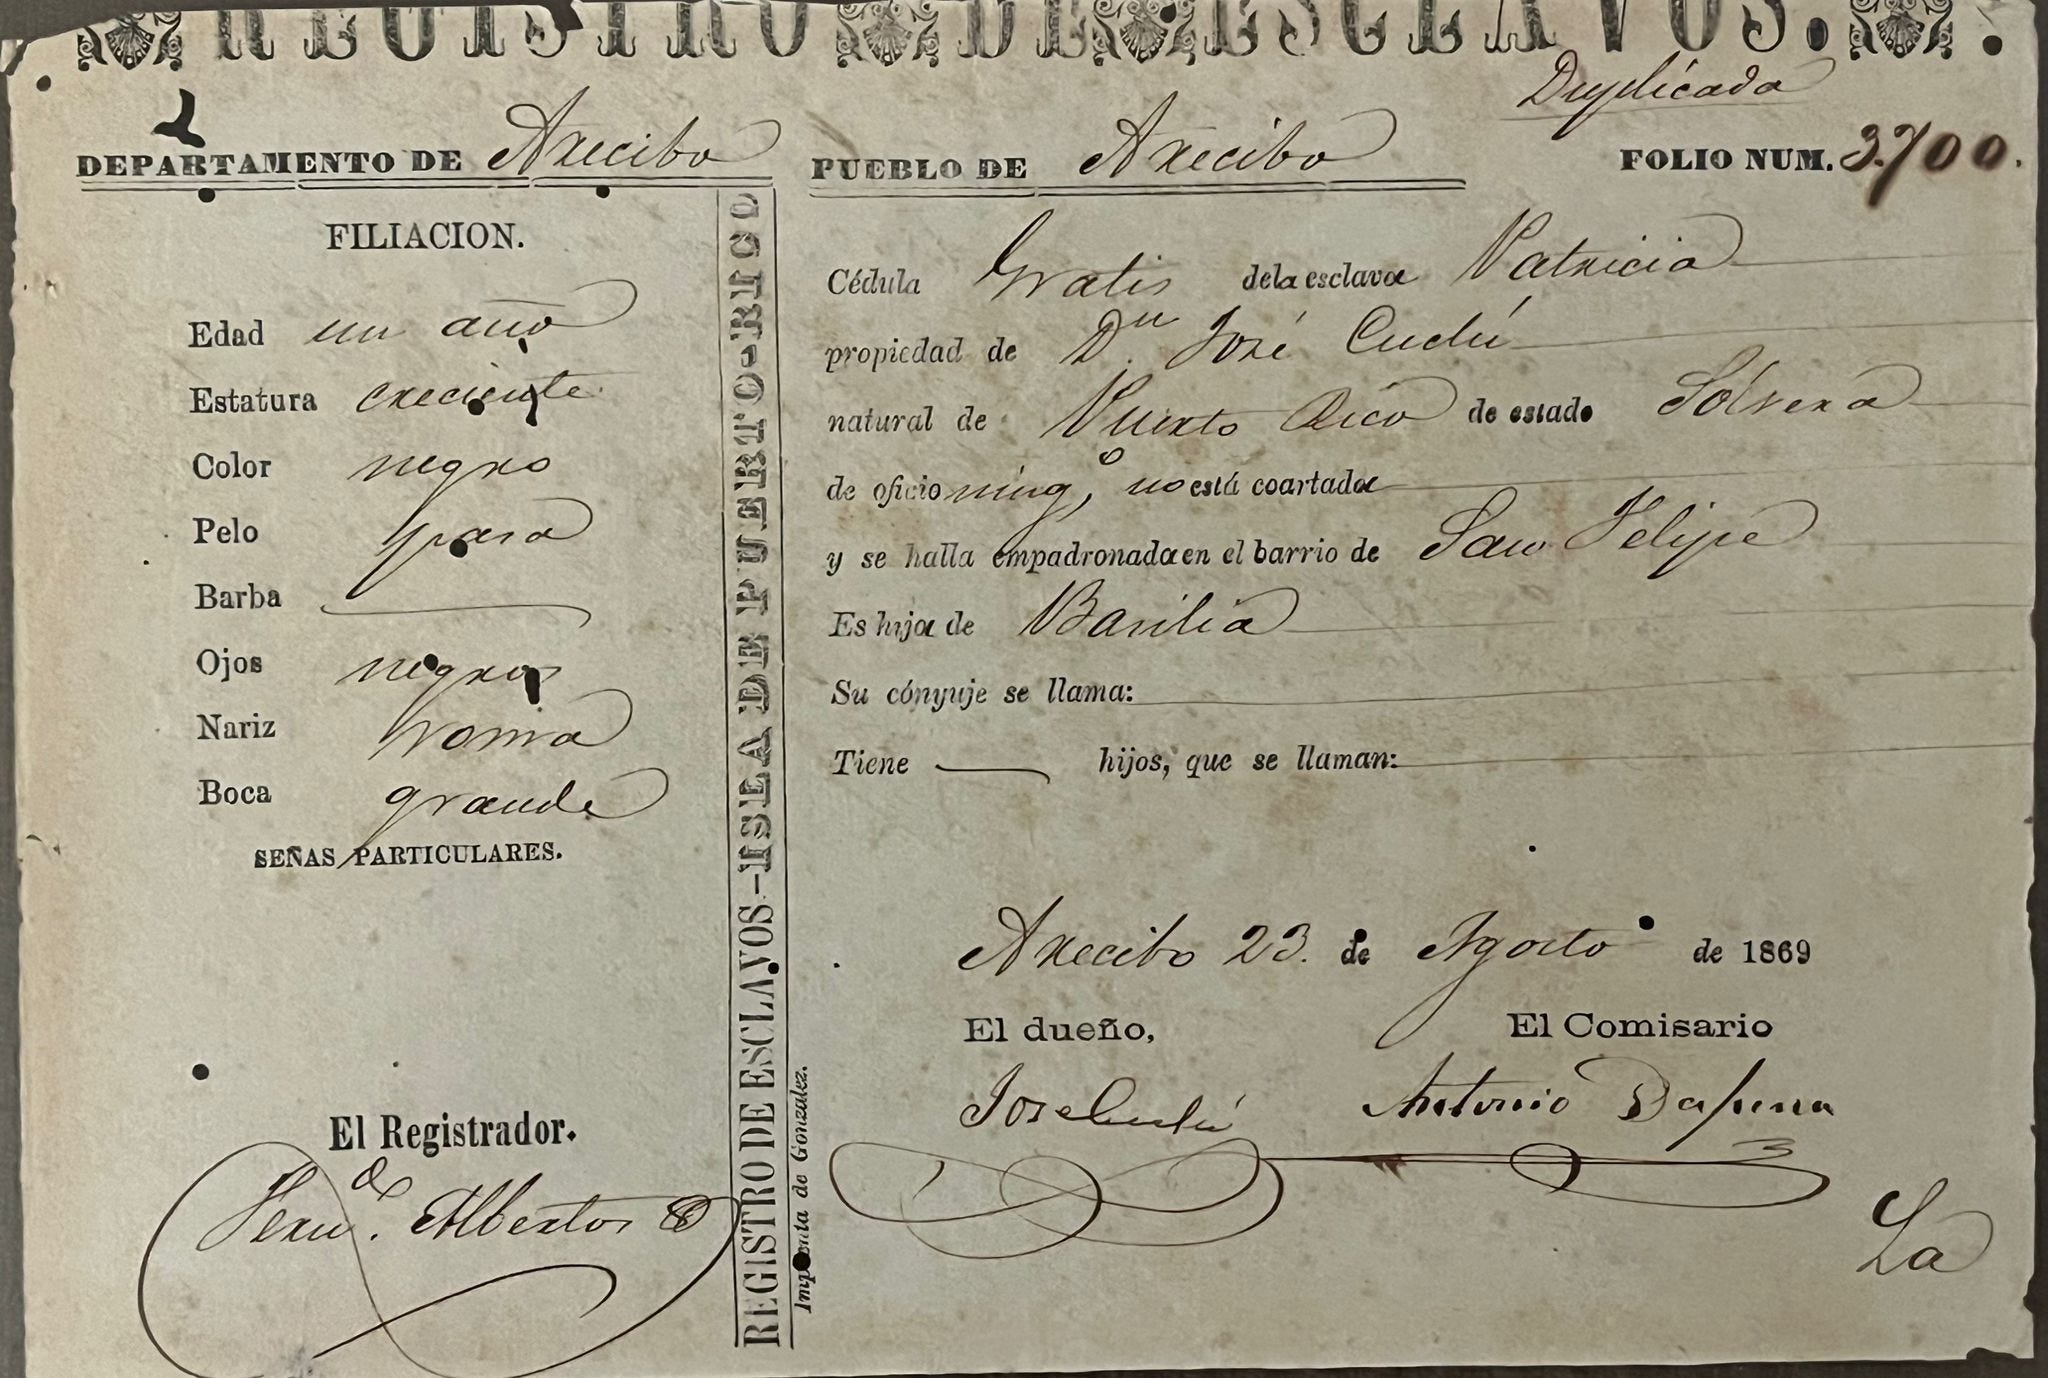 REGISTRO DE ESCLAVOS.
Duplicada
DEPARTAMENTO DE Arecibo
PUEBLO DE Arecibo
FOLIO NUM. 3.700.
FILIACION.
Edad un año
Estatura creciente
Color negro
Pelo pasa
Barba
Ojos negros
Nariz roma
Boca grande
SEÑAS PARTICULARES.
El Registrador.
Fern.do Albertos
REGISTRO DE ESCLAVOS.-ISLA DE PUERTO-RICO
Imprenta de Gonzalez.
Cédula Gratis de la esclava Patricia
propiedad de Dn. José Cudú
natural de Puerto Rico de estado Soltera
de oficio ningo, no está coartada
y se halla empadronada en el barrio de San Felipe
Es hija de Basilia
Su cónyuje se llama:
Tiene hijos, que se llaman:
Arecibo 23. de Agosto de 1869
El dueño,
El Comisario
Jose Cudú
Antonio Dapena
La